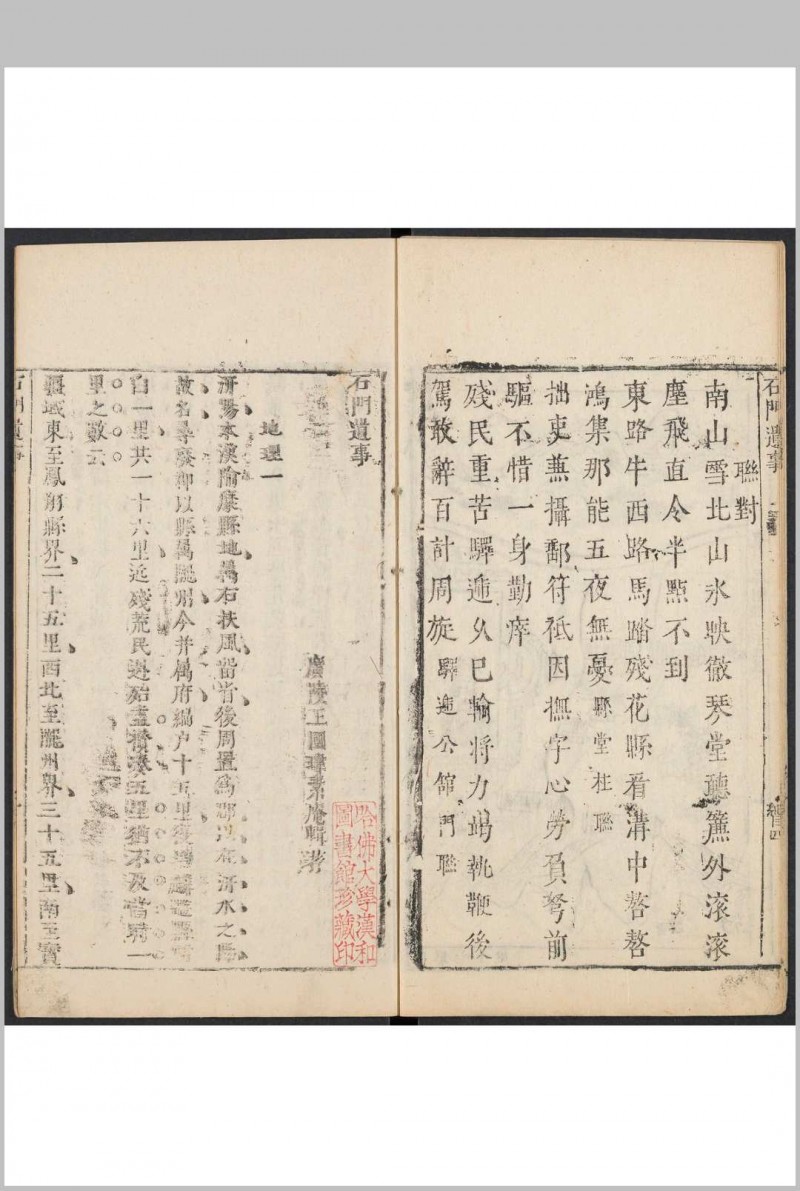 石門遺事
聯對
南山雪北山氷映徹琴堂聽簾外滾滾
塵飛直令半點不到
東路牛西路馬踏殘花縣看溝中嗸嗸
鴻集那能五夜無憂縣堂柱聯
拙吏蕪攝鄱符祗因撫字心勞負弩前
驅不惜一身勤瘁
殘民重苦驛遞久已輸將力竭執鞭後
駕敢辭百計周旋驛遞公館門聯
總目四
石門遺事
廣陵王國瑋素庵輯著
哈佛大學漢和
圖書館珍藏印
地理一
汧陽本漢隃麋縣地屬右扶風當省後周置爲郡以在汧水之陽
故名尋廢郡以縣屬隴州今并属府編户十五里後
自一里共一十六里近殘荒民過殆盡五里猶不及當時一
里之數云
疆域東至鳳翔縣界二十五里西北至隴州界三十五里南至寶
石門遺事